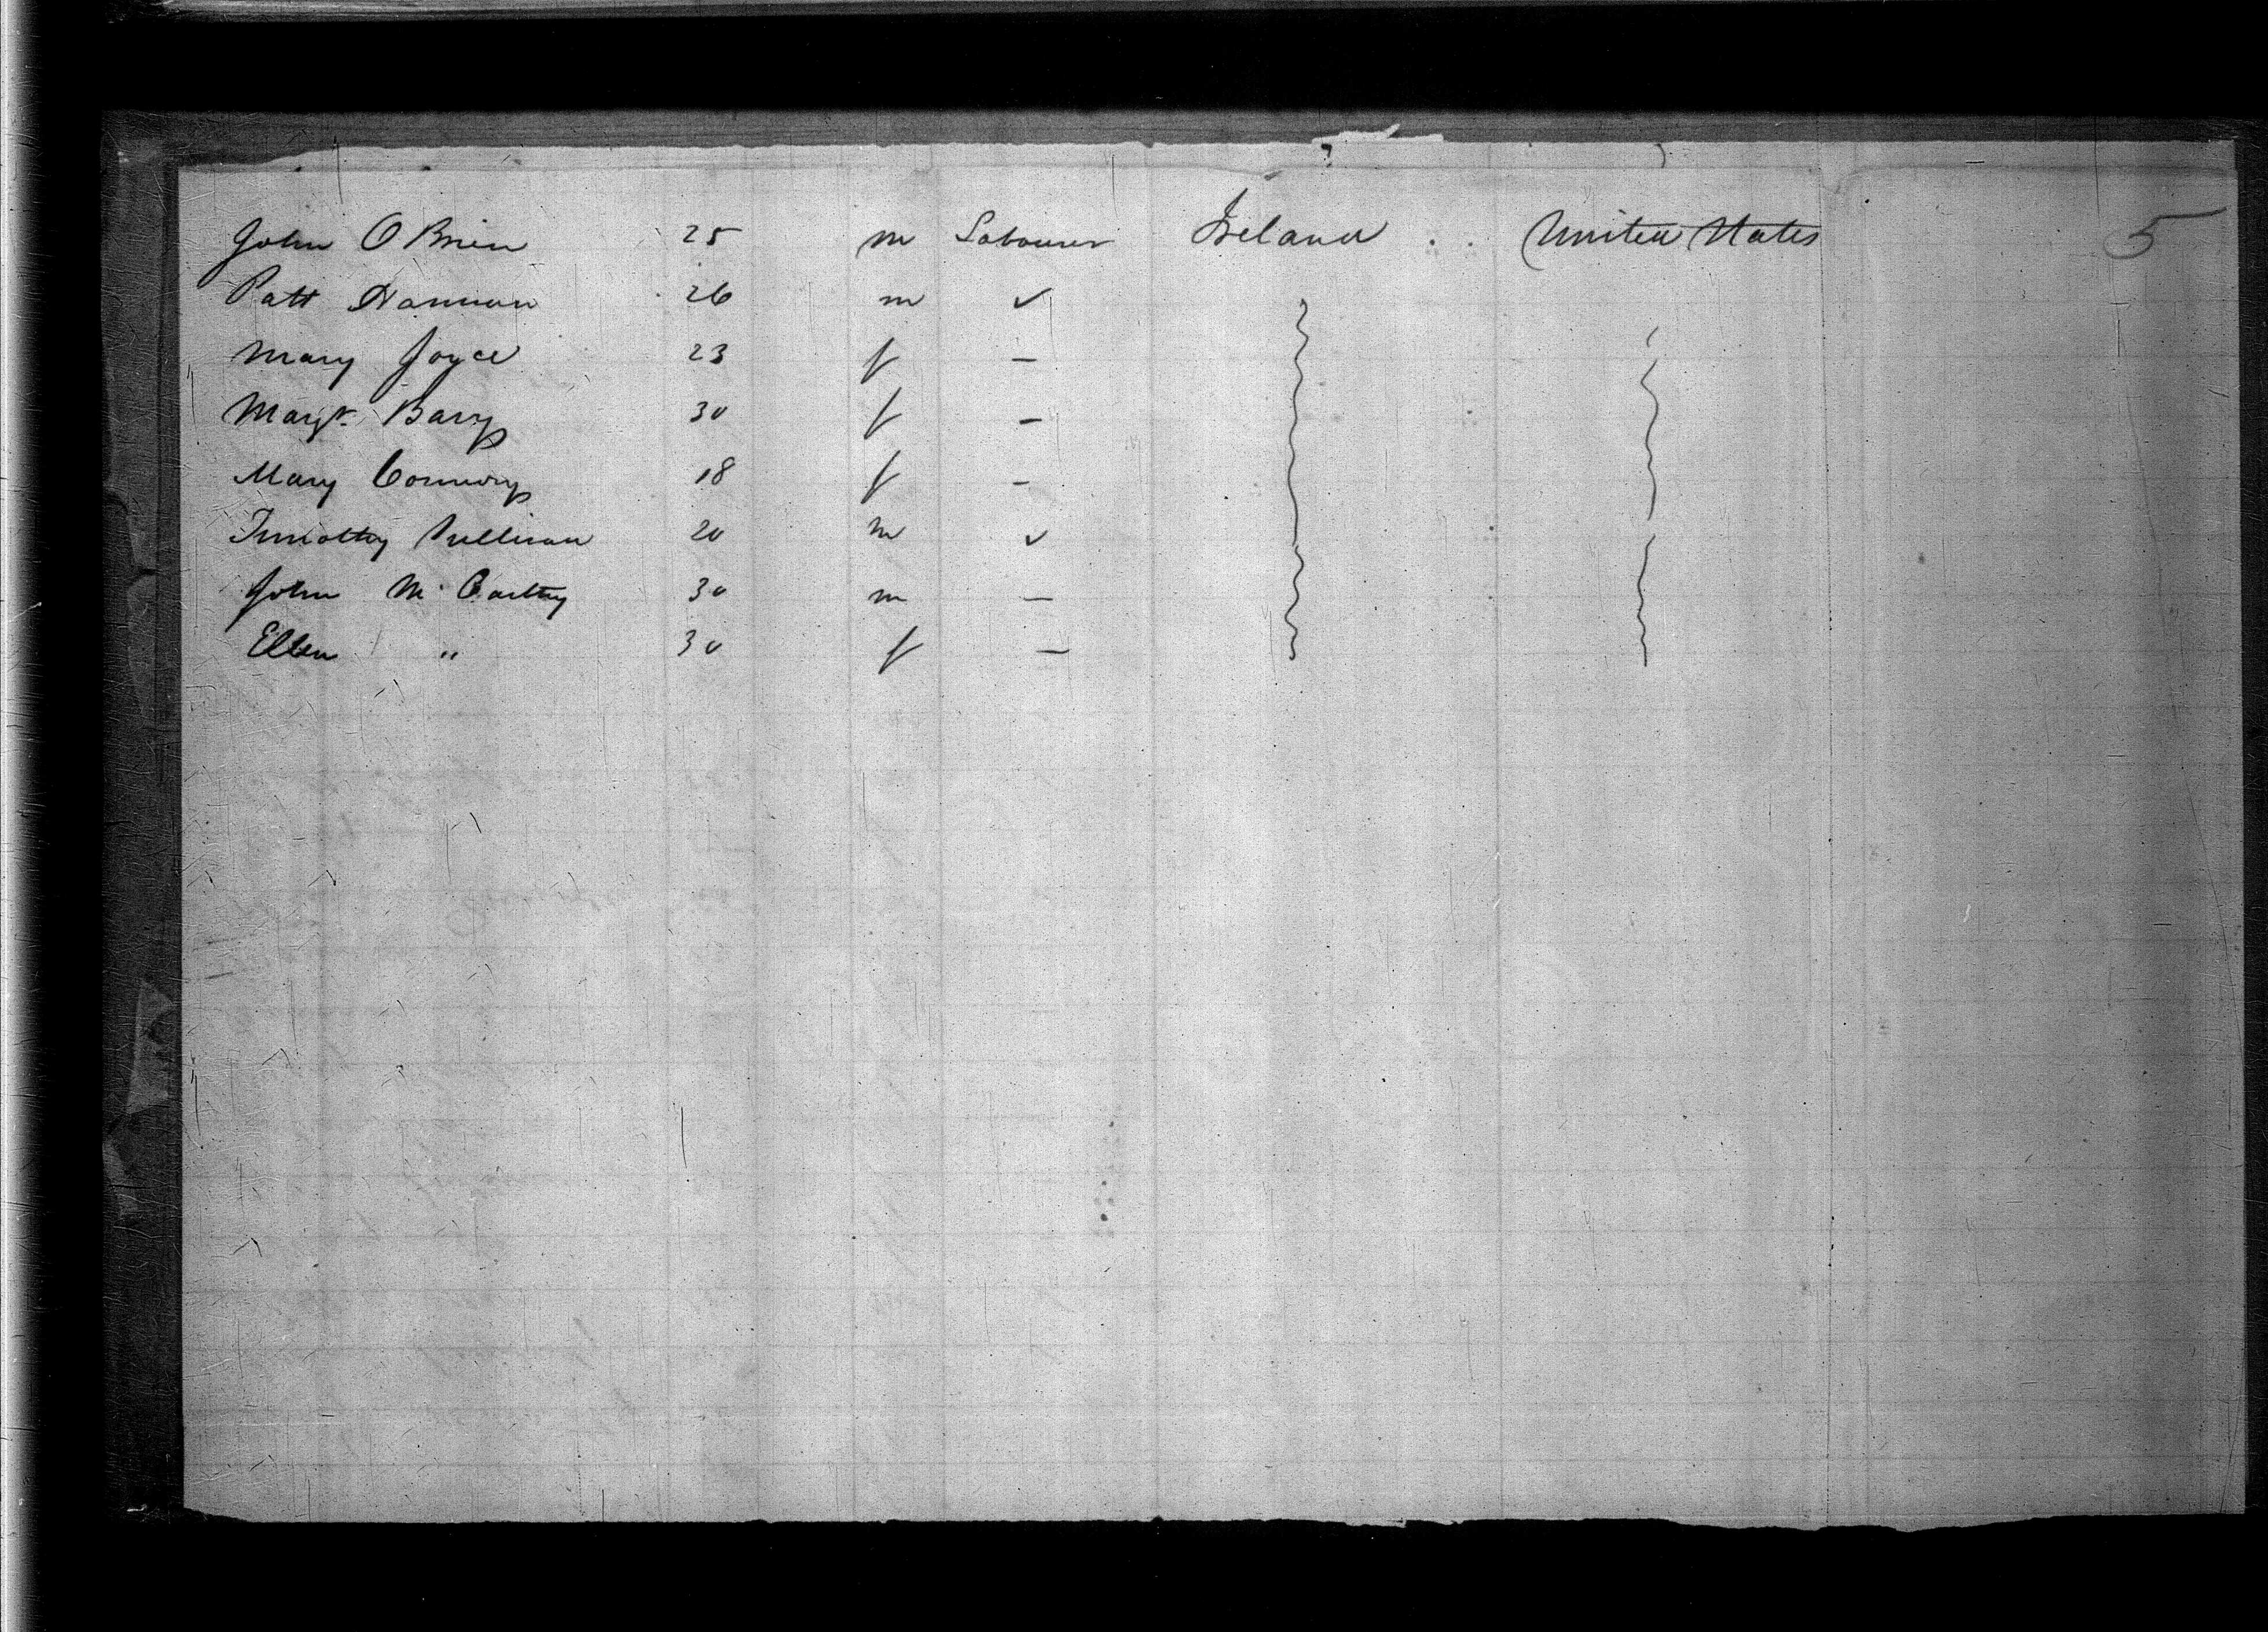 John O Brien 25 m Labourer Ireland . . United States 5
Patt Hannan 26 m ✓
Mary Joyce 23 f —
Margt. Barry 30 f —
Mary 18 f —
Timothy Sullivan 20 m ✓
John Mc Carthy 30 m —
Ellen " 30 f —